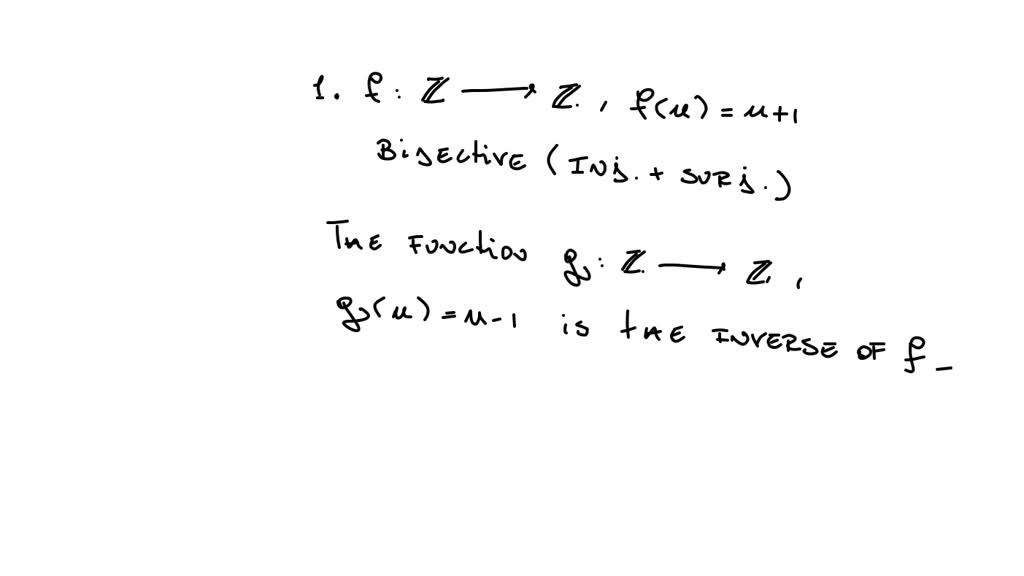 1. f: ℤ ⟶ ℤ, f(n) = n+1
Bijective (Inj. + surj.)
The function g: ℤ ⟶ ℤ,
g(n) = n-1 is the inverse of f -